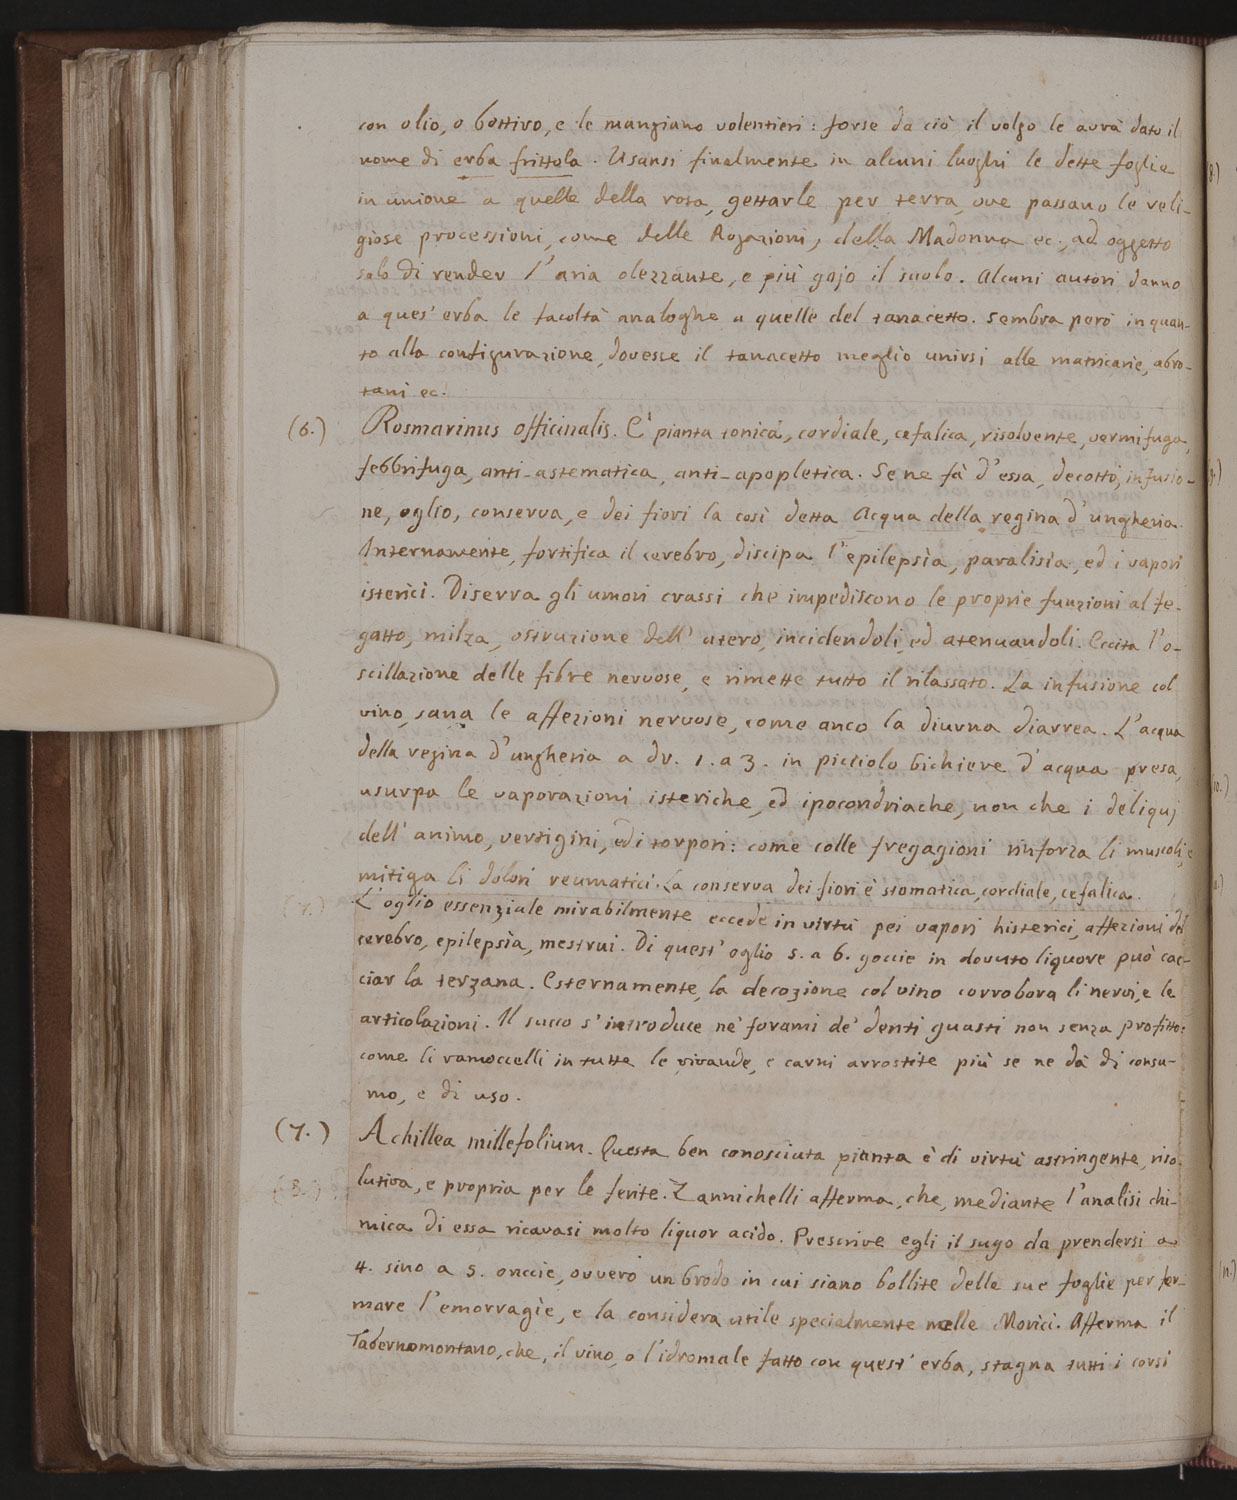 con olio, o bottiro, e le mangiano volentieri: forse da ciò il volgo le avrà dato il
nome di erba frittola. Usansi finalmente in alcuni luoghi le dette foglie
in unione a quelle della rosa, gettarle per terra, ove passano le reli-
giose processioni, come delle Rogazioni, della Madonna ec., ad oggetto
solo di render l'aria olezzante, e più gajo il suolo. Alcuni autori danno
a ques' erba le facoltà analoghe a quelle del tanacetto. Sembra però in quan-
to alla configurazione, dovesse il tanacetto meglio unirsi alle matricarie, abro-
tani ec.
(6.) Rosmarinus officinalis. E' pianta tonica, cordiale, cefalica, risolvente, vermifuga,
febbrifuga, anti-astematica, anti-apopletica. Se ne fà d'essa, decotto, infusio-
ne, oglio, conserva, e dei fiori la così detta Acqua della regina d'ungheria.
Internamente, fortifica il cerebro, discipa l'epilepsìa, paralisìa, ed i vapori
isterici. Diserra gli umori crassi che impediscono le proprie funzioni al fe-
gatto, milza, ostruzione dell' utero, incidendoli, ed atenuandoli. Eccita l'o-
scillazione delle fibre nervose, e rimette tutto il rilassato. La infusione col
vino, sana le affezioni nervose, come anco la diurna diarrea. L'acqua
della regina d'ungheria a dr. 1. a 3. in picciolo bichiere d'acqua presa,
usurpa le vaporazioni isteriche, ed ipocondriache, non che i deliquj
dell' animo, vertigini, ed i torpori: come colle fregagioni rinforza li muscoli, e
mitiga li dolori reumatici. La conserva dei fiori è stomatica, cordiale, cefalica.
L'oglio essenziale mirabilmente eccede in virtù pei vapori histerici, affezioni del
cerebro, epilepsìa, mestrui. Di quest' oglio 5. a 6. goccie in dovuto liquore può cac-
ciar la terzana. Esternamente, la decozione col vino corrobora li nervi, e le
articolazioni. Il succo s'introduce ne' forami de' denti guasti non senza profitto:
come li ramoccelli in tutte le vivande, e carni arrostite più se ne dà di consu-
mo, e di uso.
(7.) Achillea millefolium. Questa ben conosciuta pianta è di virtù astringente, riso-
lutiva, e propria per le ferite. Zannichelli afferma, che, mediante l'analisi chi-
mica di essa ricavasi molto liquor acido. Prescrive egli il sugo da prendersi a
4. sino a 5. onccie, ovvero un brodo in cui siano bollite delle sue foglie per fer-
mare l'emorragìe, e la considera utile specialmente nelle Morici. Afferma il
Tabernomontano, che, il vino, o l'idromale fatto con quest' erba, stagna tutti i corsi